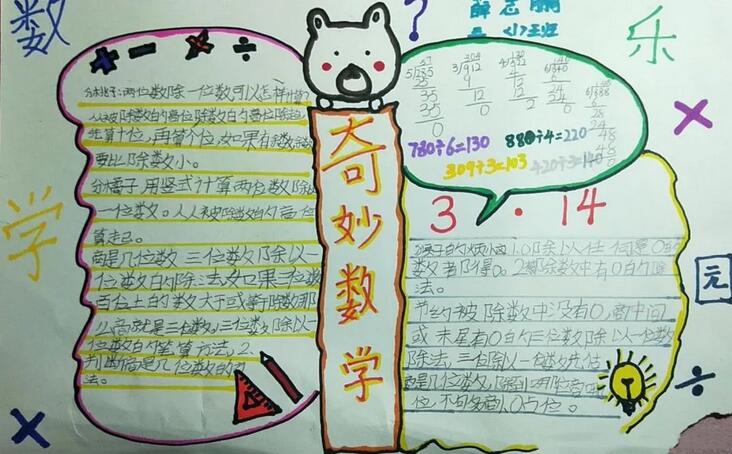 数学
乐
元
?
薛志鹏
<1>班
+ - × ÷
分桃子:两位数除一位数可以怎样计算?
从被除数的高位除数的高位除起,
先算十位,再算个位,如果有余数,余数
要比除数小。
分橘子 用竖式计算两位数除以
一位数。从被除数的高位
算起。
商是几位数 三位数除以一
位数的除法,如果三位数
百位上的数大于或等于除数,那
么商就是三位数。三位数除以一
位数的笔算方法。2
判断商是几位数的方
法。
奇妙数学
780÷6=130
880÷4=220
309÷3=103
420÷3=140
3·14
1.0除以任何是0的
数都得0。2.除数中有0的除
法。
节约 被除数中没有0,商中间
或末尾有0的三位数除以一位数
除法,三位除以一位数先估
商是几位数,除到哪位商
位,不够商1,0占位。